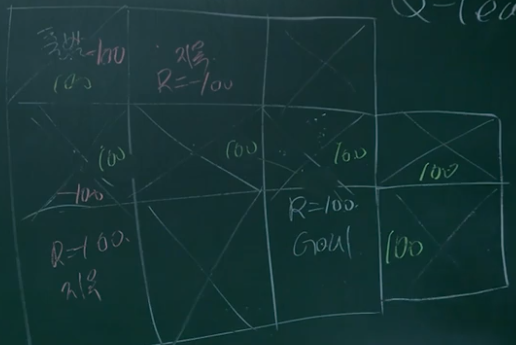 Q-lea
출발 -100
100
지옥
R=-100
100
100
100
100
-100
R=100.
Goal
R=-100.
지옥
100